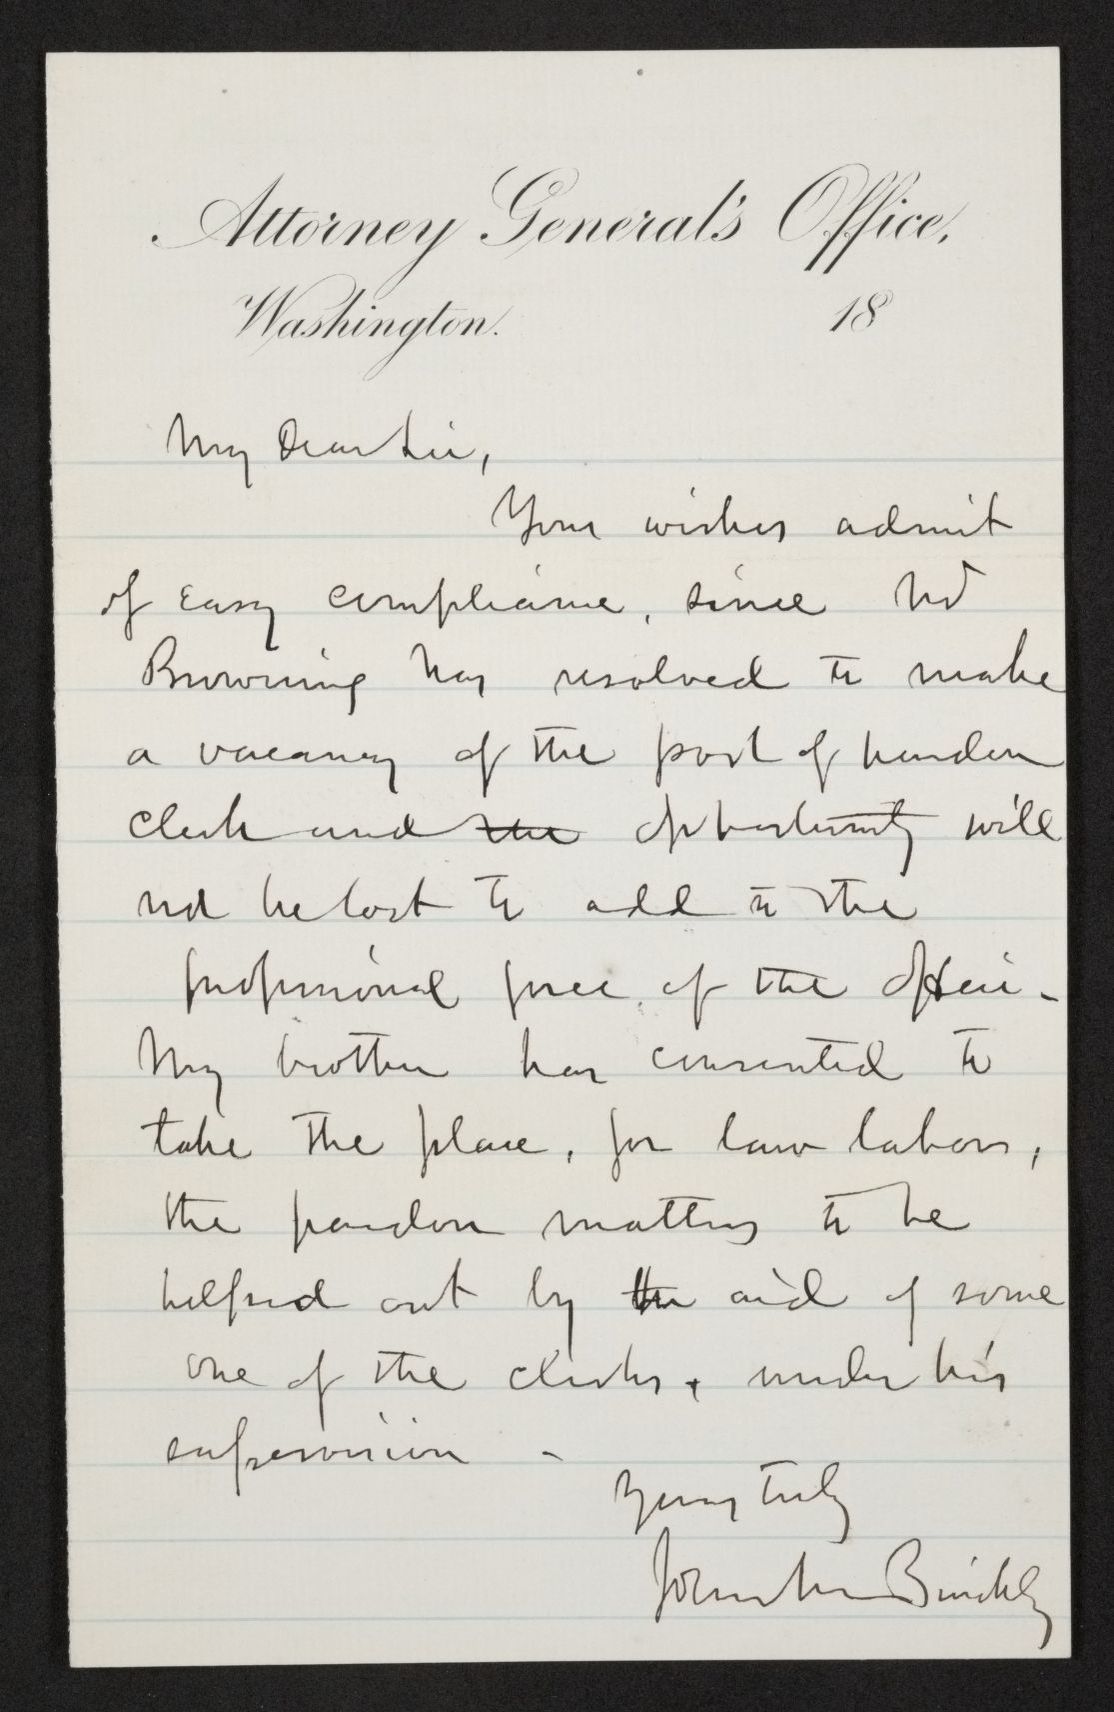 Attorney General's Office,
Washington. 18
My Dear Sir,
Your wishes admit
of easy compliance, since Mr
Browning has resolved to make
a vacancy of the post of pardon
clerk and the opportunity will
not be lost to add to the
professional force of the Office -
My brother has consented to
take the place, for law labors,
the pardon matters to be
helped out by the aid of some
one of the clerks, under his
supervision -
Yours truly
John M Binckley